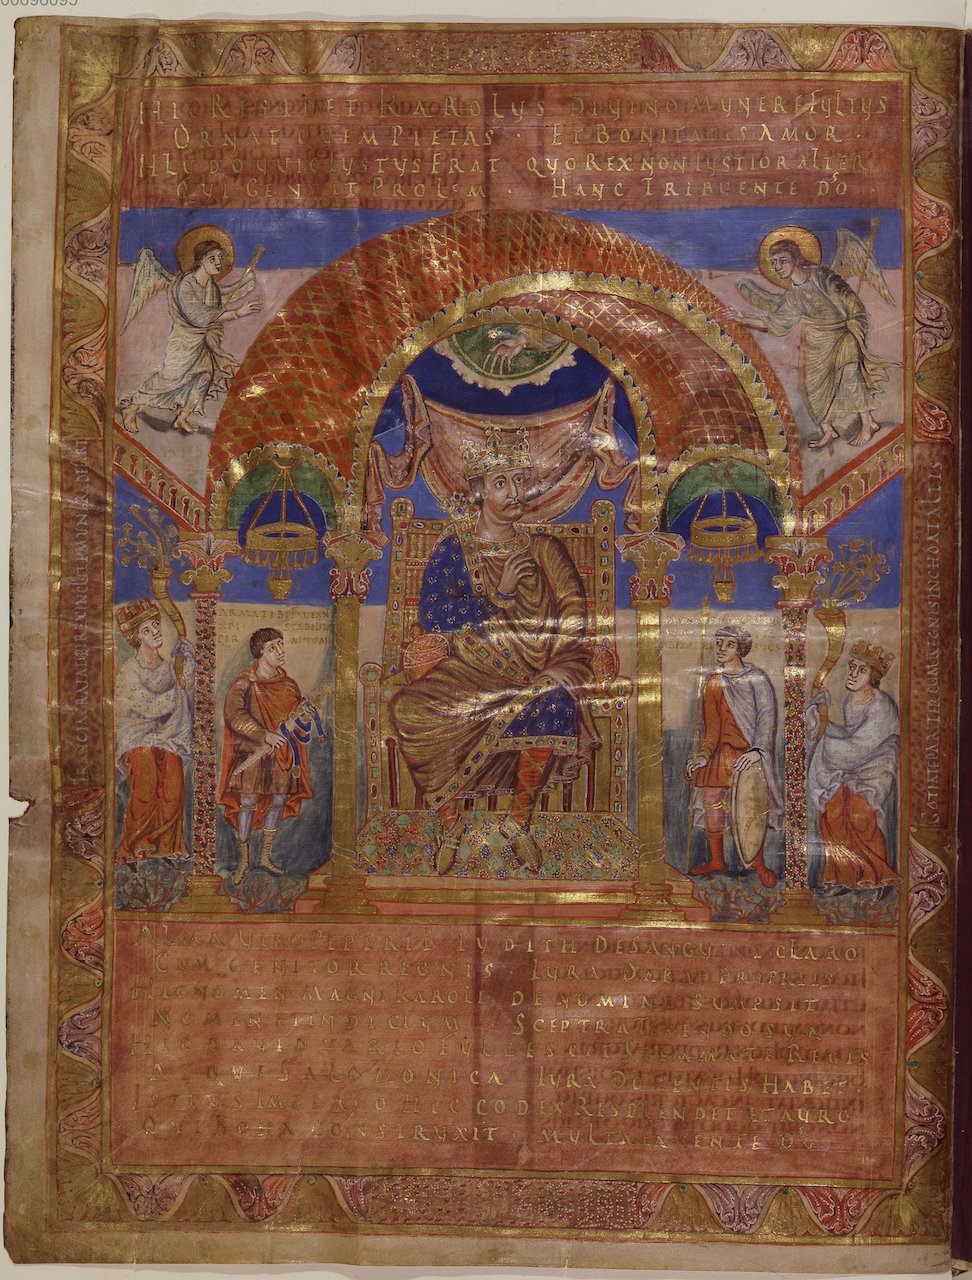 00096095
HIC RESIDET KAROLUS DIVINO MUNERE FULTUS
ORNAT QUEM PIETAS · ET BONITATIS AMOR ·
HLUDOUUIC IUSTUS ERAT QUO REX NON IUSTIOR ALTER
QUI GENUIT PROLEM · HANC TRIBUENTE DO
ALMA VIRO PEPERIT IUDITH DE SANGUINE CLARO
CUM GENITOR REGNIS IURA DABAT PROPRIIS
HIC NOMEN MAGNI KAROLI DE NOMINE SUMPSIT
NOMEN ET INDICIUM SCEPTRA TENENDO SUA
HIC DAVID VARIO FULGESCIT STEMMATE REGIS
ATQUE SALOMONICA IURA DOCENTIS HABET
ISTIUS IMPERIO HIC CODEX RESPLENDET ET AURO
QUI BONA CONSTRUXIT MULTA FAVENTE DO